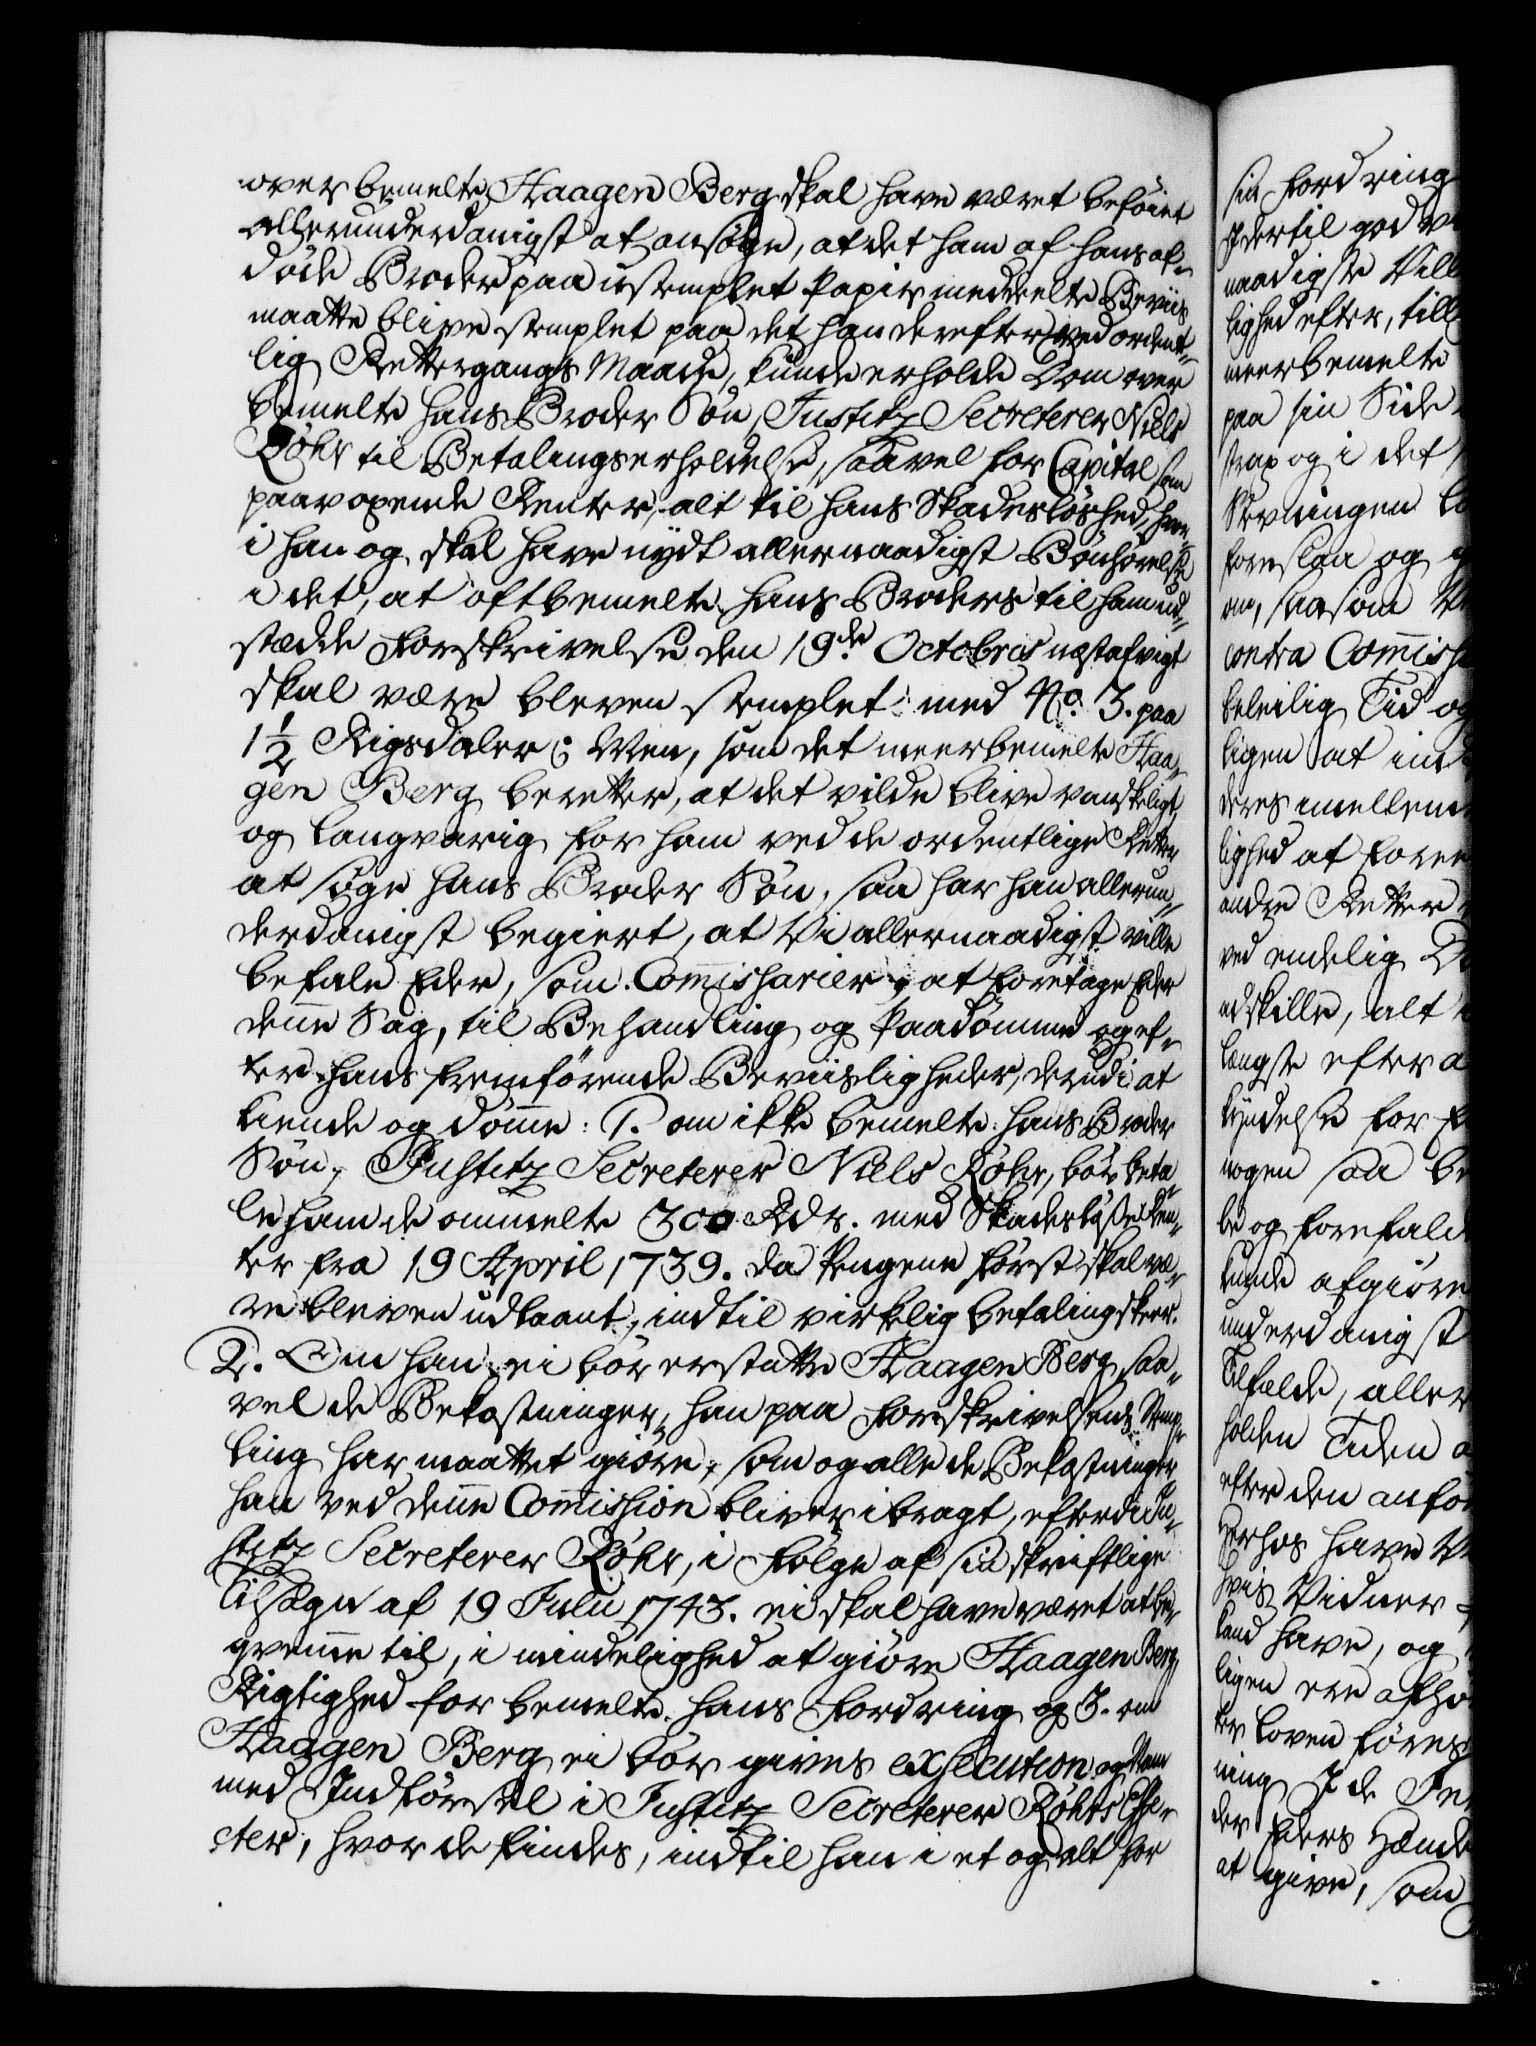 over bemelte Haagen Berg skal have været beføiet
allerunderdanigst at ansøge, at det ham af hans af-
døde Broder paa ustemplet Papir meddeelte Beviis
maatte blive stemplet paa det han derefter ved ordent-
lig Rettergangs Maade, kunde erholde Dom over
bemelte hans Broder Søn, Justitz Secreterer Niels
Röhr til Betalings erholdelse, saavel for Capital som
paavoxende Renter, alt til hans Skadesløshed, hvor-
i han og skal have nydt allernaadigst Bønhørelse
i det, at oftbemelte hans Broders til ham ud-
stædde Forskrivelse den 19de Octobris næstafvigt
skal være bleven stemplet med No. 3. paa
1½ Rigsdaler; Men, som det meerbemelte Haa-
gen Berg beretter, at det vilde blive vanskeligt
og langvarig for ham ved de ordentlige Retter
at søge hans Broder Søn, saa har han allerun-
derdanigst begiert, at Vi allernaadigst ville
befale Eder, som Commissarier, at foretage Eder
denne Sag, til Behandling og Paadømme og ef-
ter hans fremførende Beviisligheder, derudi at
kiende og dømme: 1. om ikke bemelte hans Broder
Søn, Justitz Secreterer Niels Röhr, bør beta-
le ham de ommelte 300 Rdr. med Skadesløse Ren-
ter fra 19 April 1739. da Pengene først skal væ-
re bleven udlaant, indtil virkelig betaling skeer.
2. Om han ei bør erstatte Haagen Berg, saa-
vel de Bekostninger, han paa Forskrivelsens Stemp-
ling har maattet giøre, som og alle de Bekostninger
han ved denne Commission bliver ibragt, efterdi Ju-
stitz Secreterer Röhr, i Følge af sin skriftlige
Tilsagn af 19 Julii 1743. ei skal have været at be-
qvemme til, i mindelighed at giøre Haagen Berg
Rigtighed for bemelte hans Fordring og 3. om
Haagen Berg ei bør gives execution og Nam
med Indførsel i Justitz Secreterer Röhrs Effe-
cter, hvor de findes, indtil han i et og alt for
sin Fordring
I dertil god
naadigste Vill
lighed efter, till
meerbemelte
paa sin Side
strax og i det
foreslaa og
om, saasom
contra Commissa
beleilig Tid og
ligen at ind
deres imellem
lighed at foree
andre Retter
ved endelig
adskille, alt
længste efter a
kyndelse for
nogen saa be
be og forefald
kunde afgiøre
underdanigst
Tilfælde, aller
holden Tiden
efter den anfø
Herhos have
hvis Vidner
kand have, og
ligen ere afhø
ter Loven føres
ning I de
der Eders Hænde
at give, som